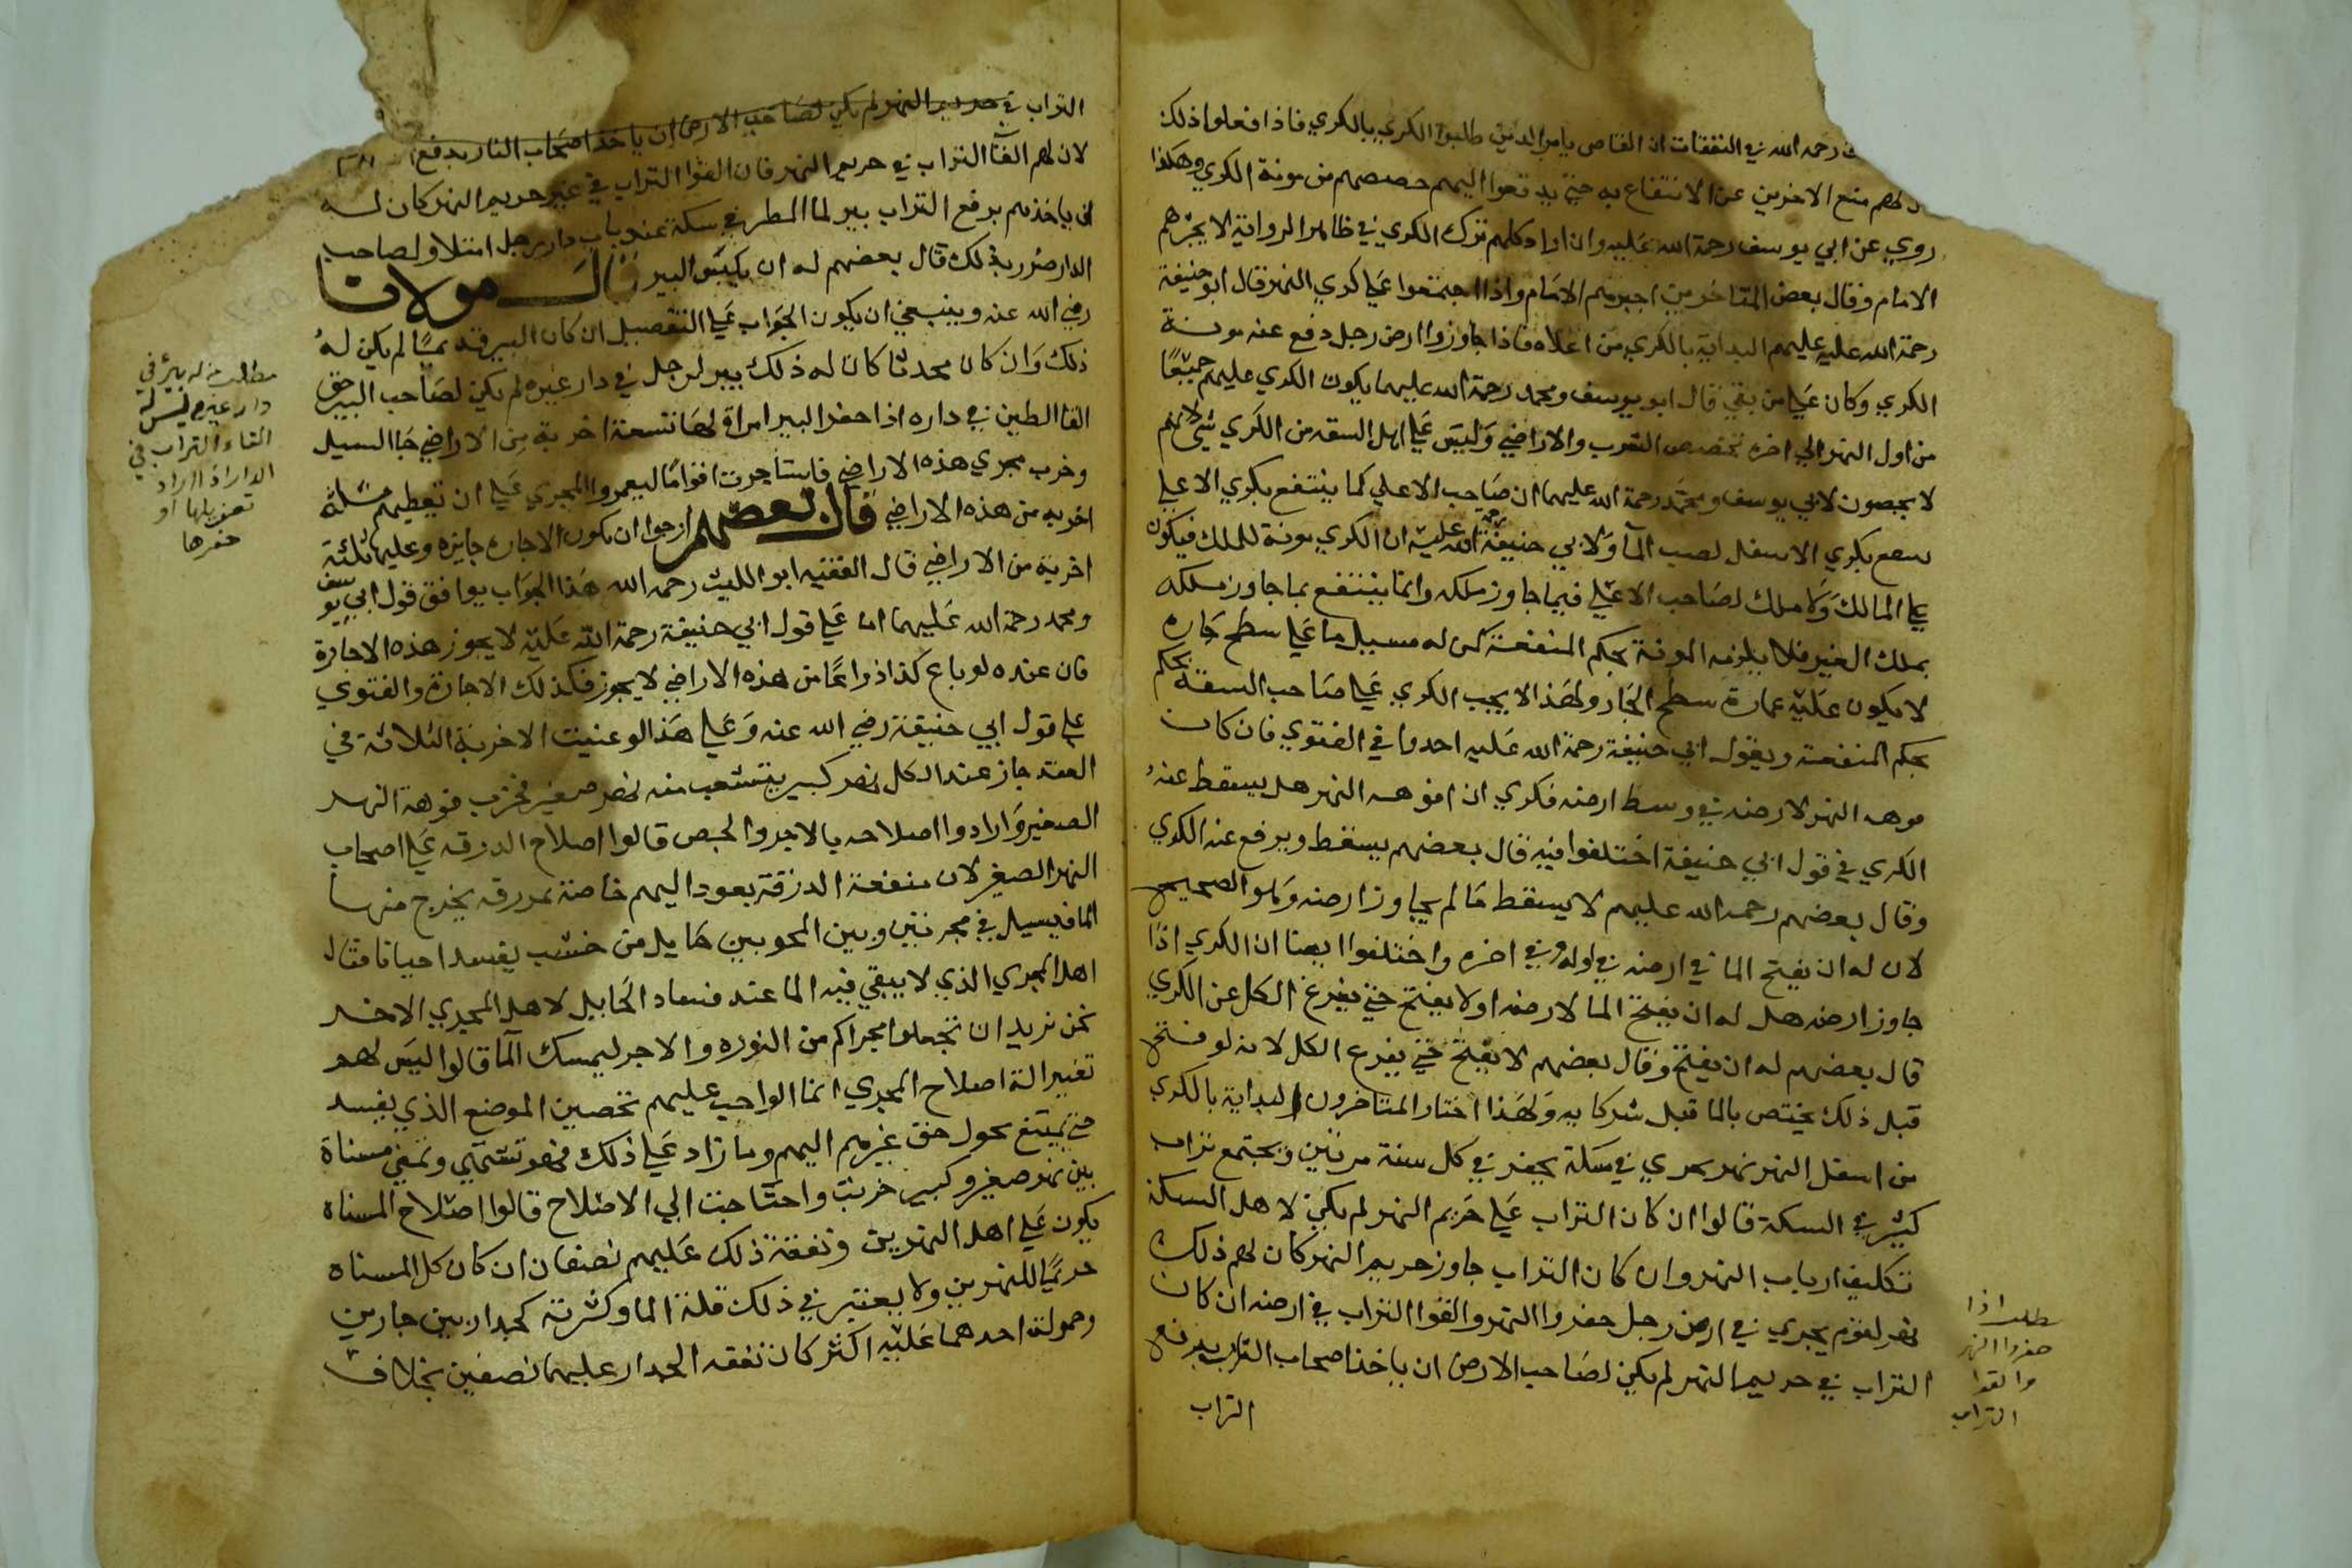 رحمه الله في النفقات ان القاضي يامر الذين طلبوا الكري بالكري فاذا فعلوا ذلك
لهم منع الاخرين عن الانتفاع به حتي يدفعوا اليهم حصصهم من مونة الكري وهكذا
روي عن ابي يوسف رحمة الله عليه وان اراد كلهم ترك الكري في ظاهر الرواية لا يجبرهم
الامام وقال بعض المتاخرين اجبرهم الامام واذا اجتمعوا علي كري النهر قال ابو حنيفة
رحمة الله عليه عليهم البداية بالكري من اعلاه فاذا جاوزوا ارض رجل دفع عنه مونة
الكري وكان علي من بقي قال ابو يوسف ومحمد رحمة الله عليهما يكون الكري عليهم جميعا
من اول النهر الي اخره بحصص الشرب والاراضي وليس علي اهل الشفه من الكري شي لانهم
لا يحصون لابي يوسف ومحمد رحمة الله عليهما ان صاحب الاعلي كما ينتفع بكري الاعلي
بكري الاسفل لصب الما ولابي حنيفة رحمة الله عليه ان الكري مونة للملك فيكون
علي المالك ولا ملك لصاحب الاعلي فيما جاوز ملكه وانما ينتفع بما جاوز ملكه
بملك الغير فلا يلزمه المونة بحكم المنفعة كمن له مسيل ما علي سطح جاره
لا يكون عليه عمارة سطح الجار ولهذا لا يجب الكري علي صاحب الشفة بحكم
بحكم المنفعة وبقول ابي حنيفة رحمة الله عليه اخذوا في الفتوي فان كان
فوهه النهر لارضه في وسط ارضه فكري ان افوهه النهر هل يسقط عنه
الكري في قول ابي حنيفة اختلفوا فيه قال بعضهم يسقط ويرفع عنه الكري
وقال بعضهم رحمه الله عليهم لا يسقط ما لم يجاوز ارضه وهو الصحيح
لان له ان يفتح الما في ارضه في اوله وفي اخره واختلفوا ايضا ان الكري اذا
جاوز ارضه هل له ان يفتح الما لارضه او لا يفتح حتي يفرغ الكل عن الكري
قال بعضهم له ان يفتح وقال بعضهم لا يفتح حتي يفرغ الكل لانه لو فتح
قبل ذلك يختص بالما قبل شركايه ولهذا اختار المتاخرون البداية بالكري
من اسفل النهر نهر يجري في سكة يحفر في كل سنة مرتين ويجتمع تراب
كثير في السكة قالوا ان كان التراب علي حريم النهر لم يكن لاهل السكة
تكليف ارباب النهر وان كان التراب جاوز حريم النهر كان لهم ذلك
نهر لقوم يجري في ارض رجل حفروا النهر والقوا التراب في ارضه ان كان
التراب في حريم النهر لم يكن لصاحب الارض ان ياخذ اصحاب النهر برفع
التراب
مطلب اذا
حفروا النهر
والقوا
التراب
التراب في حريم النهر لم يكن لصاحب الارض ان ياخذ اصحاب النار بدفع
لان لهم القآ التراب في حريم النهر فان القوا التراب في غير حريم النهر كان له
ان ياخذهم برفع التراب بير لما المطر في سكة عند باب دار رجل امتلا ولصاحب
الدار ضرر في ذلك قال بعضهم له ان يكبس البير قال مولانا
رضي الله عنه وينبغي ان يكون الجواب علي التفصيل ان كان البير قديما لم يكن له
ذلك وان كان محدثا كان له ذلك بير لرجل في دار غيره لم يكن لصاحب البير حق
القا الطين في داره اذا حفر البير امراة لها تسعة اخربة من الاراضي جا السيل
وخرب مجري هذه الاراضي فاستاجرت اقواما ليعمروا المجري علي ان تعطيهم ثلثة
اخربه من هذه الاراضي قال بعضهم ارجوا ان يكون الاجاره جايزه وعليها ثلثة
اخربة من الاراضي قال الفقيه ابو الليث رحمه الله هذا الجواب يوافق قول ابي يوسف
ومحمد رحمة الله عليهما اما علي قول ابي حنيفة رحمة الله عليه لا يجوز هذه الاجارة
فان عنده لو باع كذا ذراعا من هذه الاراضي لا يجوز فكذلك الاجارة والفتوي
علي قول ابي حنيفة رضي الله عنه وعلي هذا لو عنيت الاخربة الثلاثة في
العقد جاز عند الكل نهر كبير يتشعب منه نهر صغير فخرب فوهة النهر
الصغير وارادوا اصلاحه بالاجر والجص قالوا اصلاح الدرقه علي اصحاب
النهر الصغير لان منفعة الدرقة يعود اليهم خاصة نمر رقه يخرج منها
الما فيسيل في مجرتين وبين المجويين حايل من خشب يفسد احيانا فقال
اهل المجري الذي لا يبقي فيه الما عند فساد الحايل لاهل المجري الاخر
نحن نريد ان تجعلوا مجراكم من النوره والاجر ليمسك المآ قالوا ليس لهم
تغيير الة اصلاح المجري انما الواجب عليهم تحصين الموضع الذي يفسد
حتي يمتنع تحول حق غيرهم اليهم وما زاد علي ذلك فهو مسناة
بين نهر صغير وكبير خربت واحتاجت الي الاصلاح قالوا اصلاح المسناه
يكون علي اهل النهرين ونفقة ذلك عليهم نصفان ان كان كل المسناه
حريما للنهرين ولا يعتبر في ذلك قلة الما وكثرته كجدار بين جارين
وحمولة احدهما عليه اكثر كان نفقه الجدار عليهما نصفين بخلاف
مطلب من له بئر في
دار غيره ليس له
القاء التراب في
الدار اذا اراد
او
حفرها